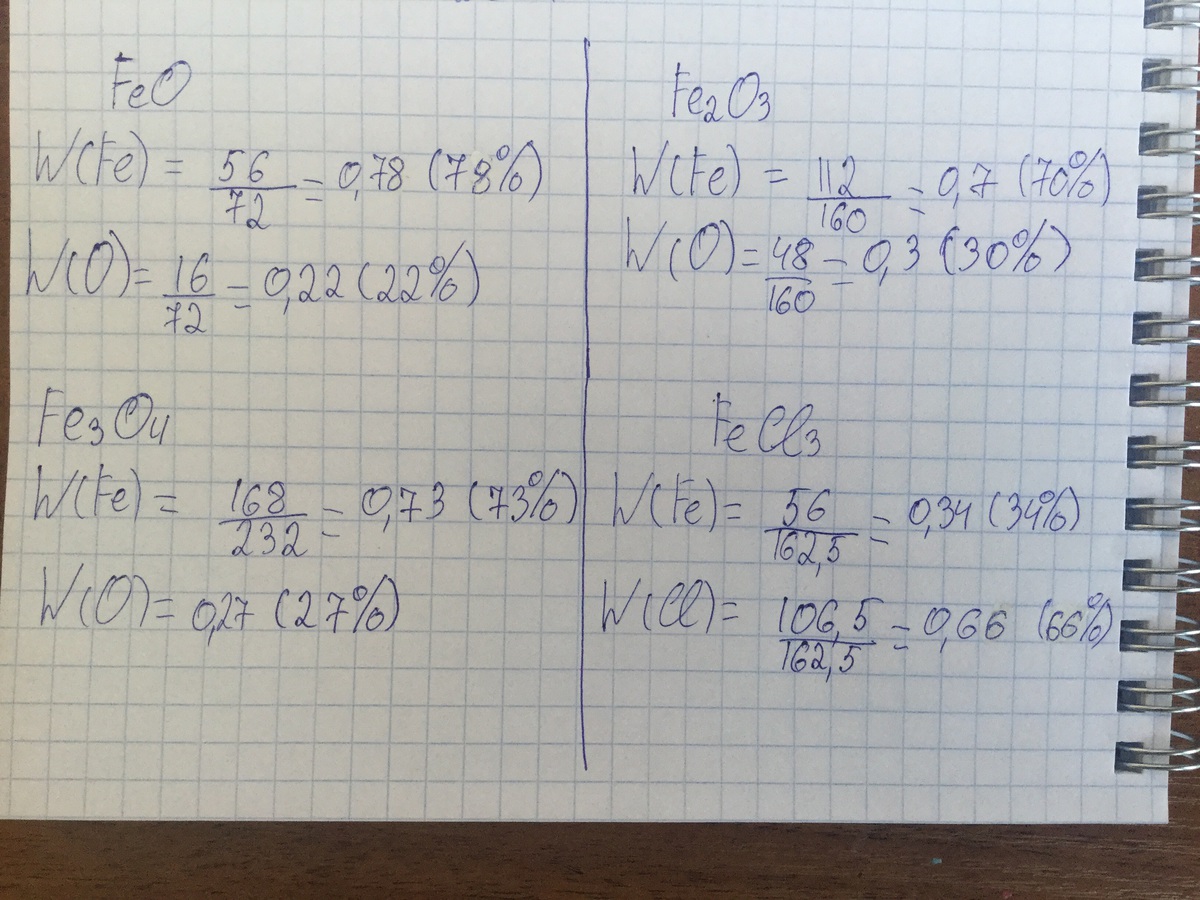 FeO
W(Fe) = 56/72 = 0,78 (78%)
W(O) = 16/72 = 0,22 (22%)
Fe₂O₃
W(Fe) = 112/160 = 0,7 (70%)
W(O) = 48/160 = 0,3 (30%)
Fe₃O₄
W(Fe) = 168/232 = 0,73 (73%)
W(O) = 0,27 (27%)
FeCl₃
W(Fe) = 56/162,5 = 0,34 (34%)
W(Cl) = 106,5/162,5 = 0,66 (66%)